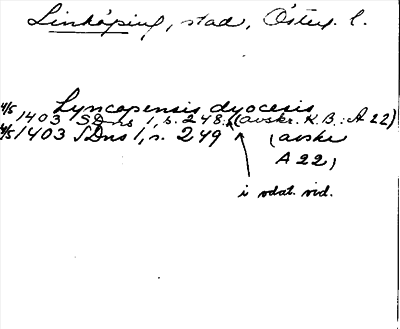 Linköping, stad, Österg. l.
Lyncopensis dyocesis
4/5 1403 SDns 1, s. 248. (avskr. K.B.: A 22)
4/5 1403 SDns 1, s. 249 (avskr
A 22)
i odat. vid.